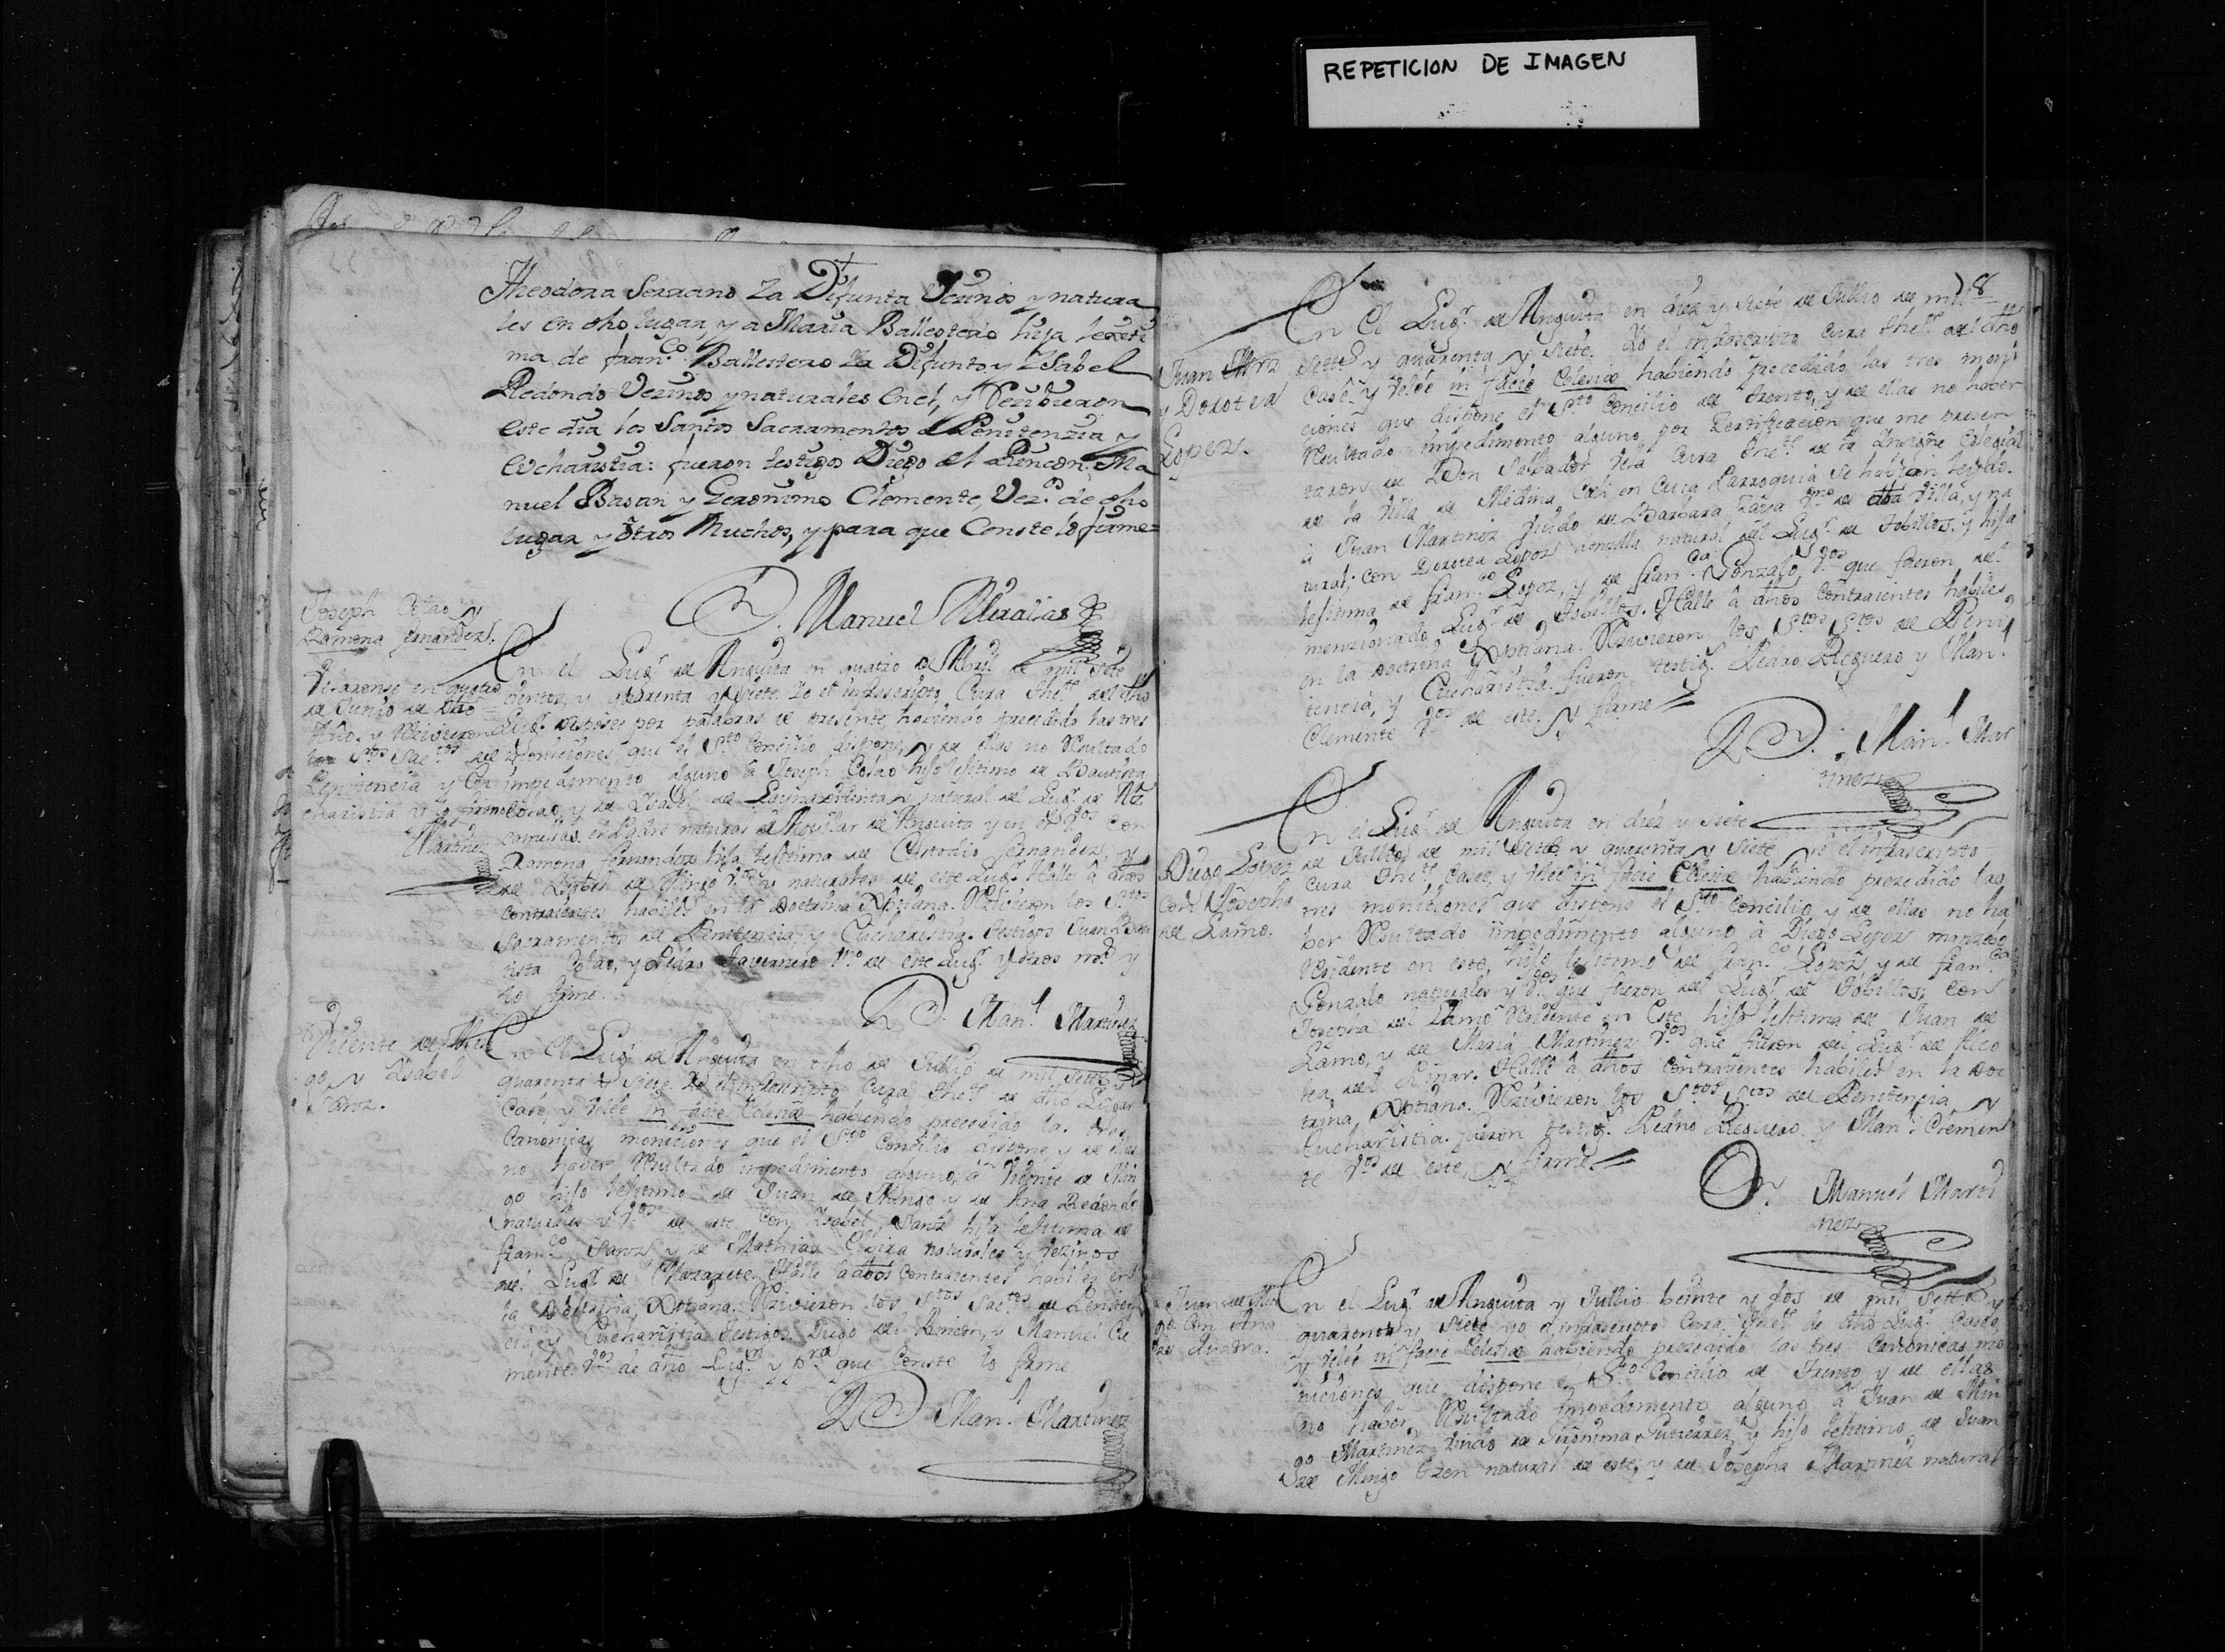 REPETICION DE IMAGEN
Theodora Serrano Ya Difunta Vecinos y natura
les en dho lugar, y a Maria Ballestero hija lexiti
ma de fran.co Ballestero Ya Difunto, y Ysabel
Redondo Vecinos y naturales en el, y Recibieron
este dia los Santos Sacramentos de Penitenzia y
Eucharistia: fueron testigos Diego del Rincon. Ma
nuel Basan y Geronimo Clemente, Vez.s de dho
lugar y otros Muchos, y para que Conste lo firme=
D. Manuel
Joseph Colao y
Ramona fernandez.
Velaronse en quatro
de Junio de dho
Año. y Rezivieron
los S.tos Sac.tos de
Penitencia y Eu
charistia y lo firme
Martinez
En el Lug.r de Anguita en quatro de Abril de mil sete
cientos, y quarenta y siete. Yo el infrascripto, Cura the.te del dho
Lug.r despose por palabras de presente habiendo precedido las tres
moniciones, que el S.to Concilio dispone, y de ellas no Resultado
impedimento alguno à Joseph Colao hijo lesitimo de Bautista
Colao, y de Ysabel de Layna difunta y natural del Lug.r de
el Padre natural de Aguilar de Anguita y en el V.os con
Ramona fernandez hija lesitima de Custodio fernandez, y
de Ysabel de Mingo V.os y naturales de este Lug.r Halle à dhos
contraientes habiles en la Doctrina Xptiana. Rezivieron los S.tos
Sacramentos de Penitencia, y Eucharistia. testigos Juan Bau
tista Colao, y Pedro Tavernero V.os de este Lug.r y otros m.s y
lo firme.
D. Man.l Martinez
Vicente de Min
go, y Ysabel
Sanz.
En el Lug.r de Anguita en ocho de Jullio de mil sette.s
quarenta y siete. Yo el infrascripto Cura the.te de dho Lugar
Case, y Vele in facie Eclesiæ habiendo precedido las tres
Canonicas moniciones que el S.to Concilio dispone, y de ellas
no haber Resultado impedimento alguno, à Vicente de Min
go hijo lesitimo de Juan de Mingo y de Ana Redondo
naturales y V.os de este. Con Ysabel Sanz hija lesitima de
fran.co Sanz y de Mathias naturales y vezinos
del Lug.r de Mazarete. Halle à dhos contraientes habiles en
la Doctrina Xptiana. Rezivieron los S.tos Sac.tos de Peniten
cia, y Eucharistia. testigos. Diego del Rincon, y Manuel Cle
mente. V.os de dho Lug.r y p.ra que Conste lo firme
D. Man.l Martinez
78
Juan Mrz
y Dorotea
Lopez.
En el Lug.r de Anguita en diez y siete de Jullio de mil
sette.s y quarenta y siete. Yo el infrascripto Cura the.te del dho
Case y Vele in facie Eclesiæ habiendo precedido las tres moni
ciones que dispone el S.to Concilio de trento, y de ellas no haber
Resultado impedimento alguno por Zertificacion que me presen
taron de Don Salbador Vela Cura the.te de la Insigne Colegial
de la Villa de Medina Celi en Cuia Parroquia se habian leydo.
à Juan Martinez Viudo de Barbara Raya V.no de dha Villa, y na
tural; con Dorotea Lopez donzella natural del Lug.r de Tobillos, y hija
lesitima de fran.co Lopez, y de fran.ca Gonzalo, V.os que fueron del
menzionado Lug.r de Tobillos. Halle à dhos contraientes habiles
en la Doctrina Xptiana. Rezivieron los S.tos S.tos de Peni
tencia, y Eucharistia. fueron testig.s Pedro Reguero y Man.l
Clemente V.os de este y firme
D. Man.l Mar
tinez
Diego Lopez
con Josepha
del Lamo.
En el Lug.r de Anguita en diez y siete
de Jullio, de mil sette.s y quarenta y siete Yo el infrascripto
Cura the.te Casee, y Vele in facie Eclesiæ habiendo prezedido las
tres moniciones que dispone el S.to Concilio, y de ellas no ha
ber Resultado impedimento alguno à Diego Lopez manzebo
Residente en este, hijo lesitimo de fran.co Lopez y de fran.ca
Gonzalo naturales y V.os que fueron del Lug.r de Tobillos, con
Josepha del Lamo Residente en este hija lesitima de Juan de
Lamo, y de Maria Martinez V.os que fueron del Lug.r de Alco
lea del Pinar. Halle à dhos Contrayentes habiles en la Doc
trina Xptiana. Rezivieron los S.tos S.tos de Penitencia y
Eucharistia. fueron testig.s Pedro Reguero, y Man.l Clemen
te V.os de este, y firme.
D. Manuel Marti
nez
Juan de Min
go con Ana
En el Lug.r de Anguita y Jullio beinte y dos de mil sette.s y
quarenta y siete yo el infrascripto Cura the.te de dho Lug.r Casee
y Vele in facie Eclesiæ habiendo prezedido las tres Canonicas mo
niciones que dispone el S.to Concilio de Trento y de ellas
no haber Resultado impedimento alguno à Juan de Min
go Martinez viudo de Geronima Gutierrez, y hijo lesitimo de Juan
de Mingo natural de este, y de Josepha Martinez natural